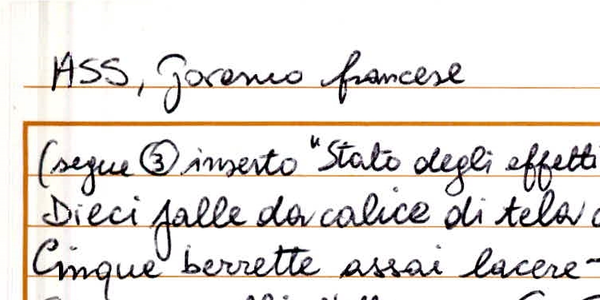 ASS, Governo francese
(segue ③ inserto "Stato degli effetti
Dieci palle da calice di tela
Cinque berrette assai lacere-